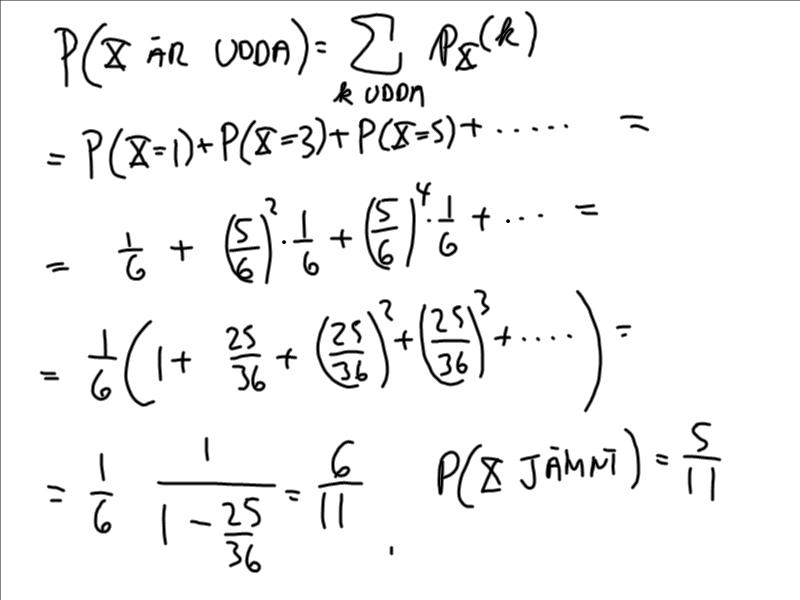 P(X ÄR UDDA) = ∑_{k UDDA} p_X(k)
= P(X=1) + P(X=3) + P(X=5) + ..... =
= 1/6 + (5/6)^2 · 1/6 + (5/6)^4 · 1/6 + ... =
= 1/6 (1 + 25/36 + (25/36)^2 + (25/36)^3 + ....) =
= 1/6 1/(1 - 25/36) = 6/11 P(X JÄMNT) = 5/11